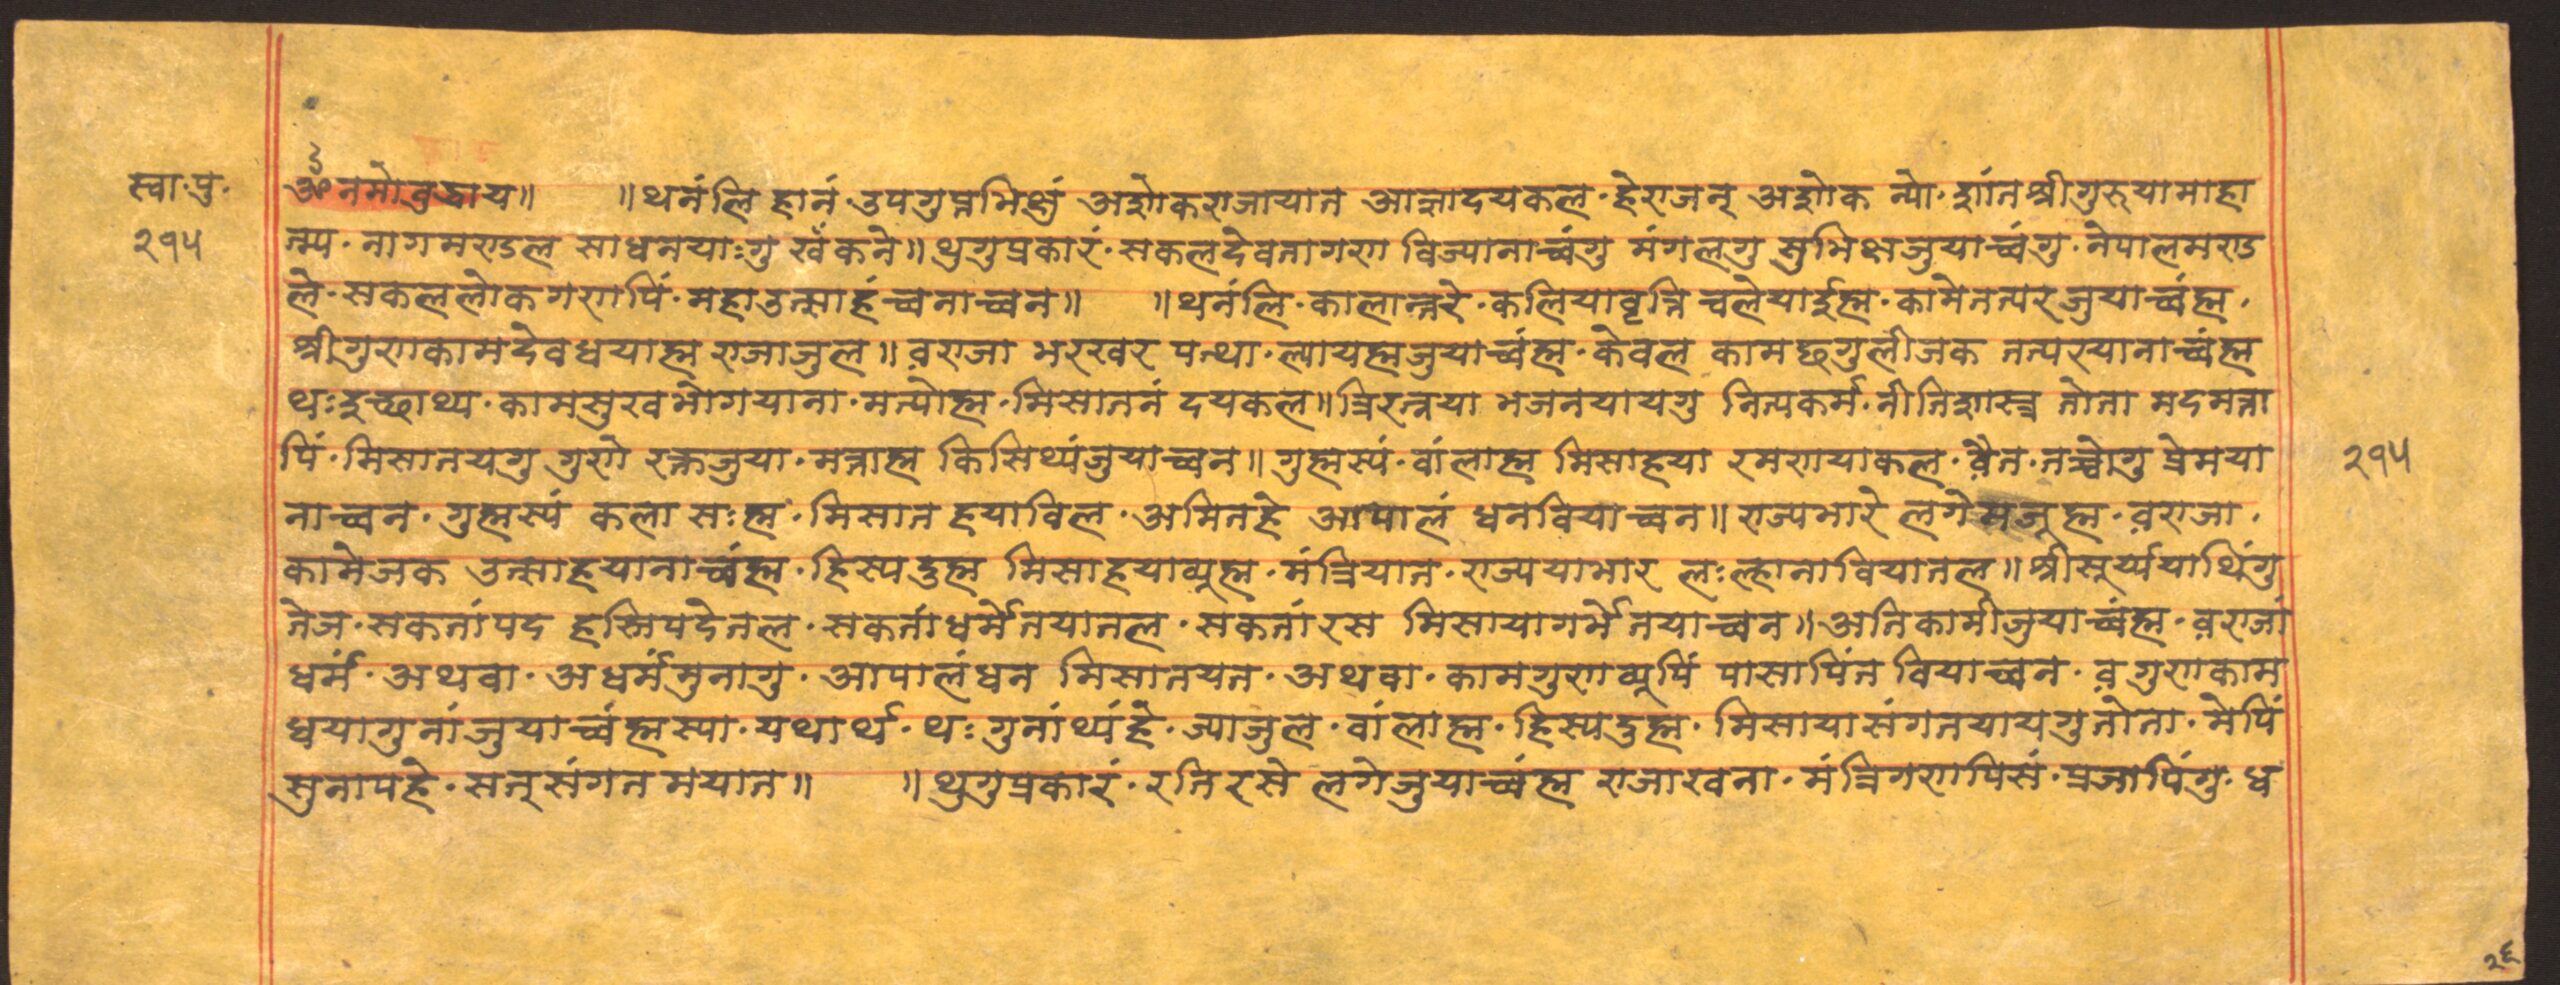 स्वा·पु·
२१५
ॐ नमो बुद्धाय॥ ॥थनंलि हानं उपगुप्तभिक्षुं अशोकराजायात आज्ञादयकल·हेराजन् अशोक न्यो·शांतश्रीगुरुयामाहा
त्म्य·नागमण्डल साधनयाःगु खँकने॥थुगुप्रकारं·सकलदेवतागण विज्यानाच्वंगु मंगलगु सुभिक्षजुयाच्वंगु·नेपालमण्ड
ले·सकललोकगणपिं·महाउत्साहं च्वनाच्वन॥ ॥थनंलि·कालान्तरे·कलियावृत्ति चलेयाईह्म·कामेतत्परजुयाच्वंह्म·
श्रीगुणकामदेवधयाह्म राजाजुल॥व़राजा भरखर पन्था·ल्यायह्मजुयाच्वंह्म·केवल कामछगुलीजक तत्परयानाच्वंह्म
थःइच्छाथ्य·कामसुखभोगयाना·मत्योह्म·मिसाततं दयकल॥त्रिरत्नया भजनयायगु नित्यकर्म·नीतिशास्त्र तोता मदमत्ता
पिं·मिसातयगु गुणे रक्तजुया·मत्ताह्म किसिथ्यंजुयाच्वन॥गुह्मस्यं·वांलाह्म मिसाहया रमणयाकल·व़ैत·तच्वोगु प्रेमया
नाच्वन·गुह्मस्यं कला सःह्म·मिसात हयाविल·अमितहे आपालं धनवियाच्वन॥राज्यभारे लगेमजूह्म·व़राजा·
कामेजक उत्साहयानाच्वंह्म·हिस्यदुह्म मिसाहयाब्यूह्म·मंत्रियात·राज्ययाभार लःल्हानावियातल॥श्रीसूर्य्ययाथिंगु
तेज·सकतांपद हस्तिपदेतल·सकतांधर्मेतयातल·सकतांरस मिसायागर्भेतयाच्वन॥अतिकामीजुयाच्वंह्म·व़राजां
धर्म·अथवा·अधर्ममुनागु·आपालंधन मिसातयत·अथवा·कामगुणब्यूपिं पासापिंत वियाच्वन·व़गुणकाम
धयागुनांजुयाच्वंह्मस्या·यथार्थ·थःगुनांथ्यंहे·ज्याजुल·वांलाह्म·हिस्यदुह्म·मिसायासंगतयायगुतोता·मेपिं
सुनापहे·सत्संगत मयात॥ ॥थुगुप्रकारं·रतिरसे लगेजुयाच्वंह्म राजाखना·मंत्रिगणपिसं·प्रजापिंगु·ध
२१५
२६